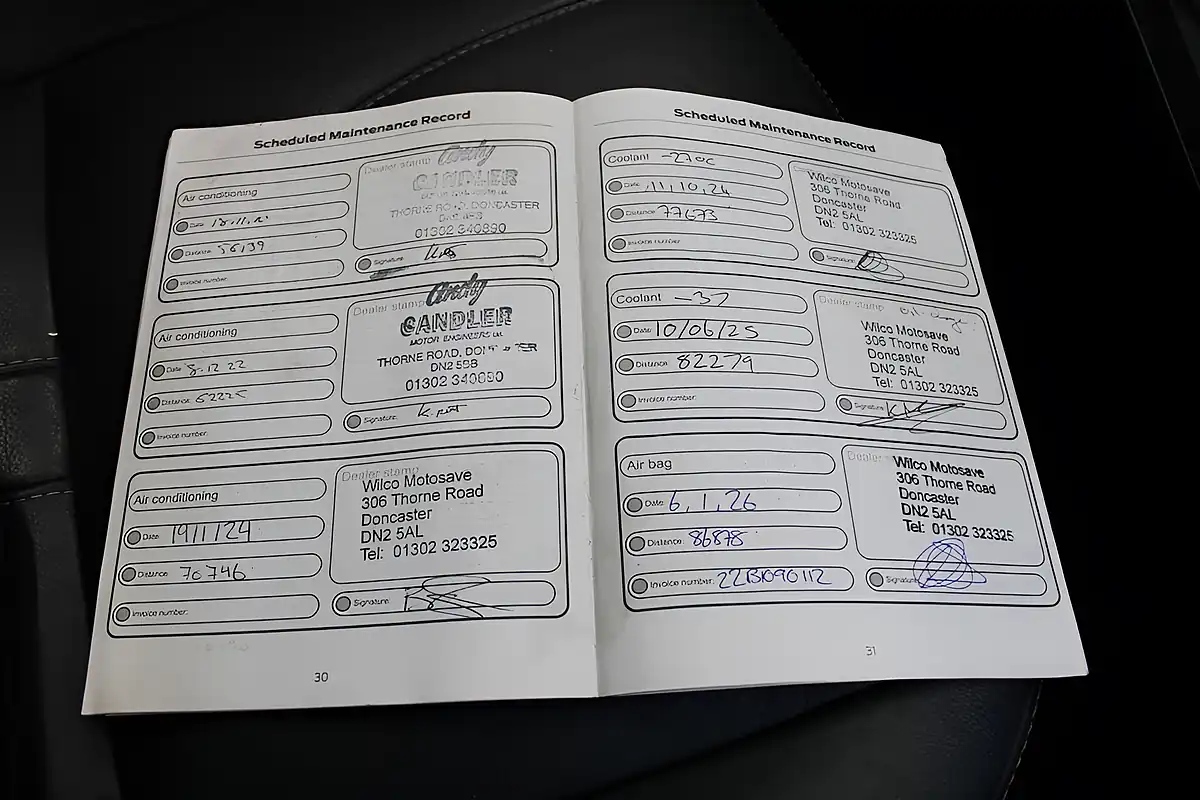 Scheduled Maintenance Record
Air conditioning
Date
Distance: 56,139
Invoice number:
Dealer stamp
Andy
CANDLER
THORNE ROAD, DONCASTER
01302 340890
Signature:
Air conditioning
Date 8.12 22
Distance: 62225
Invoice number:
Dealer stamp
Andy
CANDLER
MOTOR ENGINEERS Ltd.
THORNE ROAD, DONCASTER
DN2 5BB
01302 340890
Signature:
Air conditioning
Date 19/1/24
Distance 70746
Invoice number:
Dealer stamp
Wilco Motosave
306 Thorne Road
Doncaster
DN2 5AL
Tel: 01302 323325
Signature:
30
Scheduled Maintenance Record
Coolant -27°C
Date 11,10,24
Distance 77673
Invoice number:
Wilco Motosave
306 Thorne Road
Doncaster
DN2 5AL
Tel: 01302 323325
Signature:
Coolant -37
Date 10/06/25
Distance: 82279
Invoice number:
Dealer stamp
Wilco Motosave
306 Thorne Road
Doncaster
DN2 5AL
Tel: 01302 323325
Signature:
Air bag
Date 6,1,26
Distance: 86878
Invoice number: 22B1090112
Dealer
Wilco Motosave
306 Thorne Road
Doncaster
DN2 5AL
Tel: 01302 323325
Signature:
31